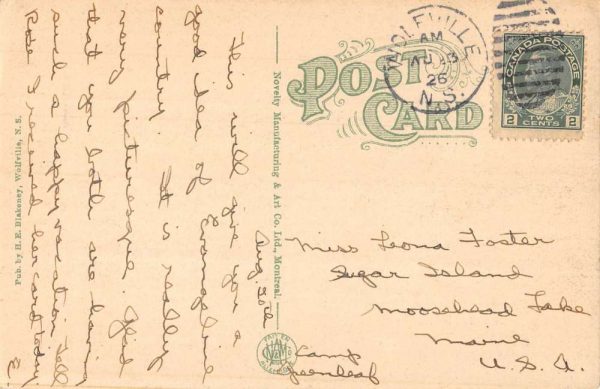 POST CARD
WOLFVILLE
AM
26
N.S.
CANADA POSTAGE
2 TWO CENTS 2
Pub. by H. E. Blakeney, Wolfville, N. S.
Novelty Manufacturing & Art Co. Ltd., Montreal.
This will give you a
good idea of Evangeline
country. It is really
very picturesque. Glad
that you both are having
such a happy vacation. Tell
Rose I received her card today.
E
Miss Leona Foster
Sugar Island
Moosehead Lake
Maine
U. S. A.
Camp
Greenleaf